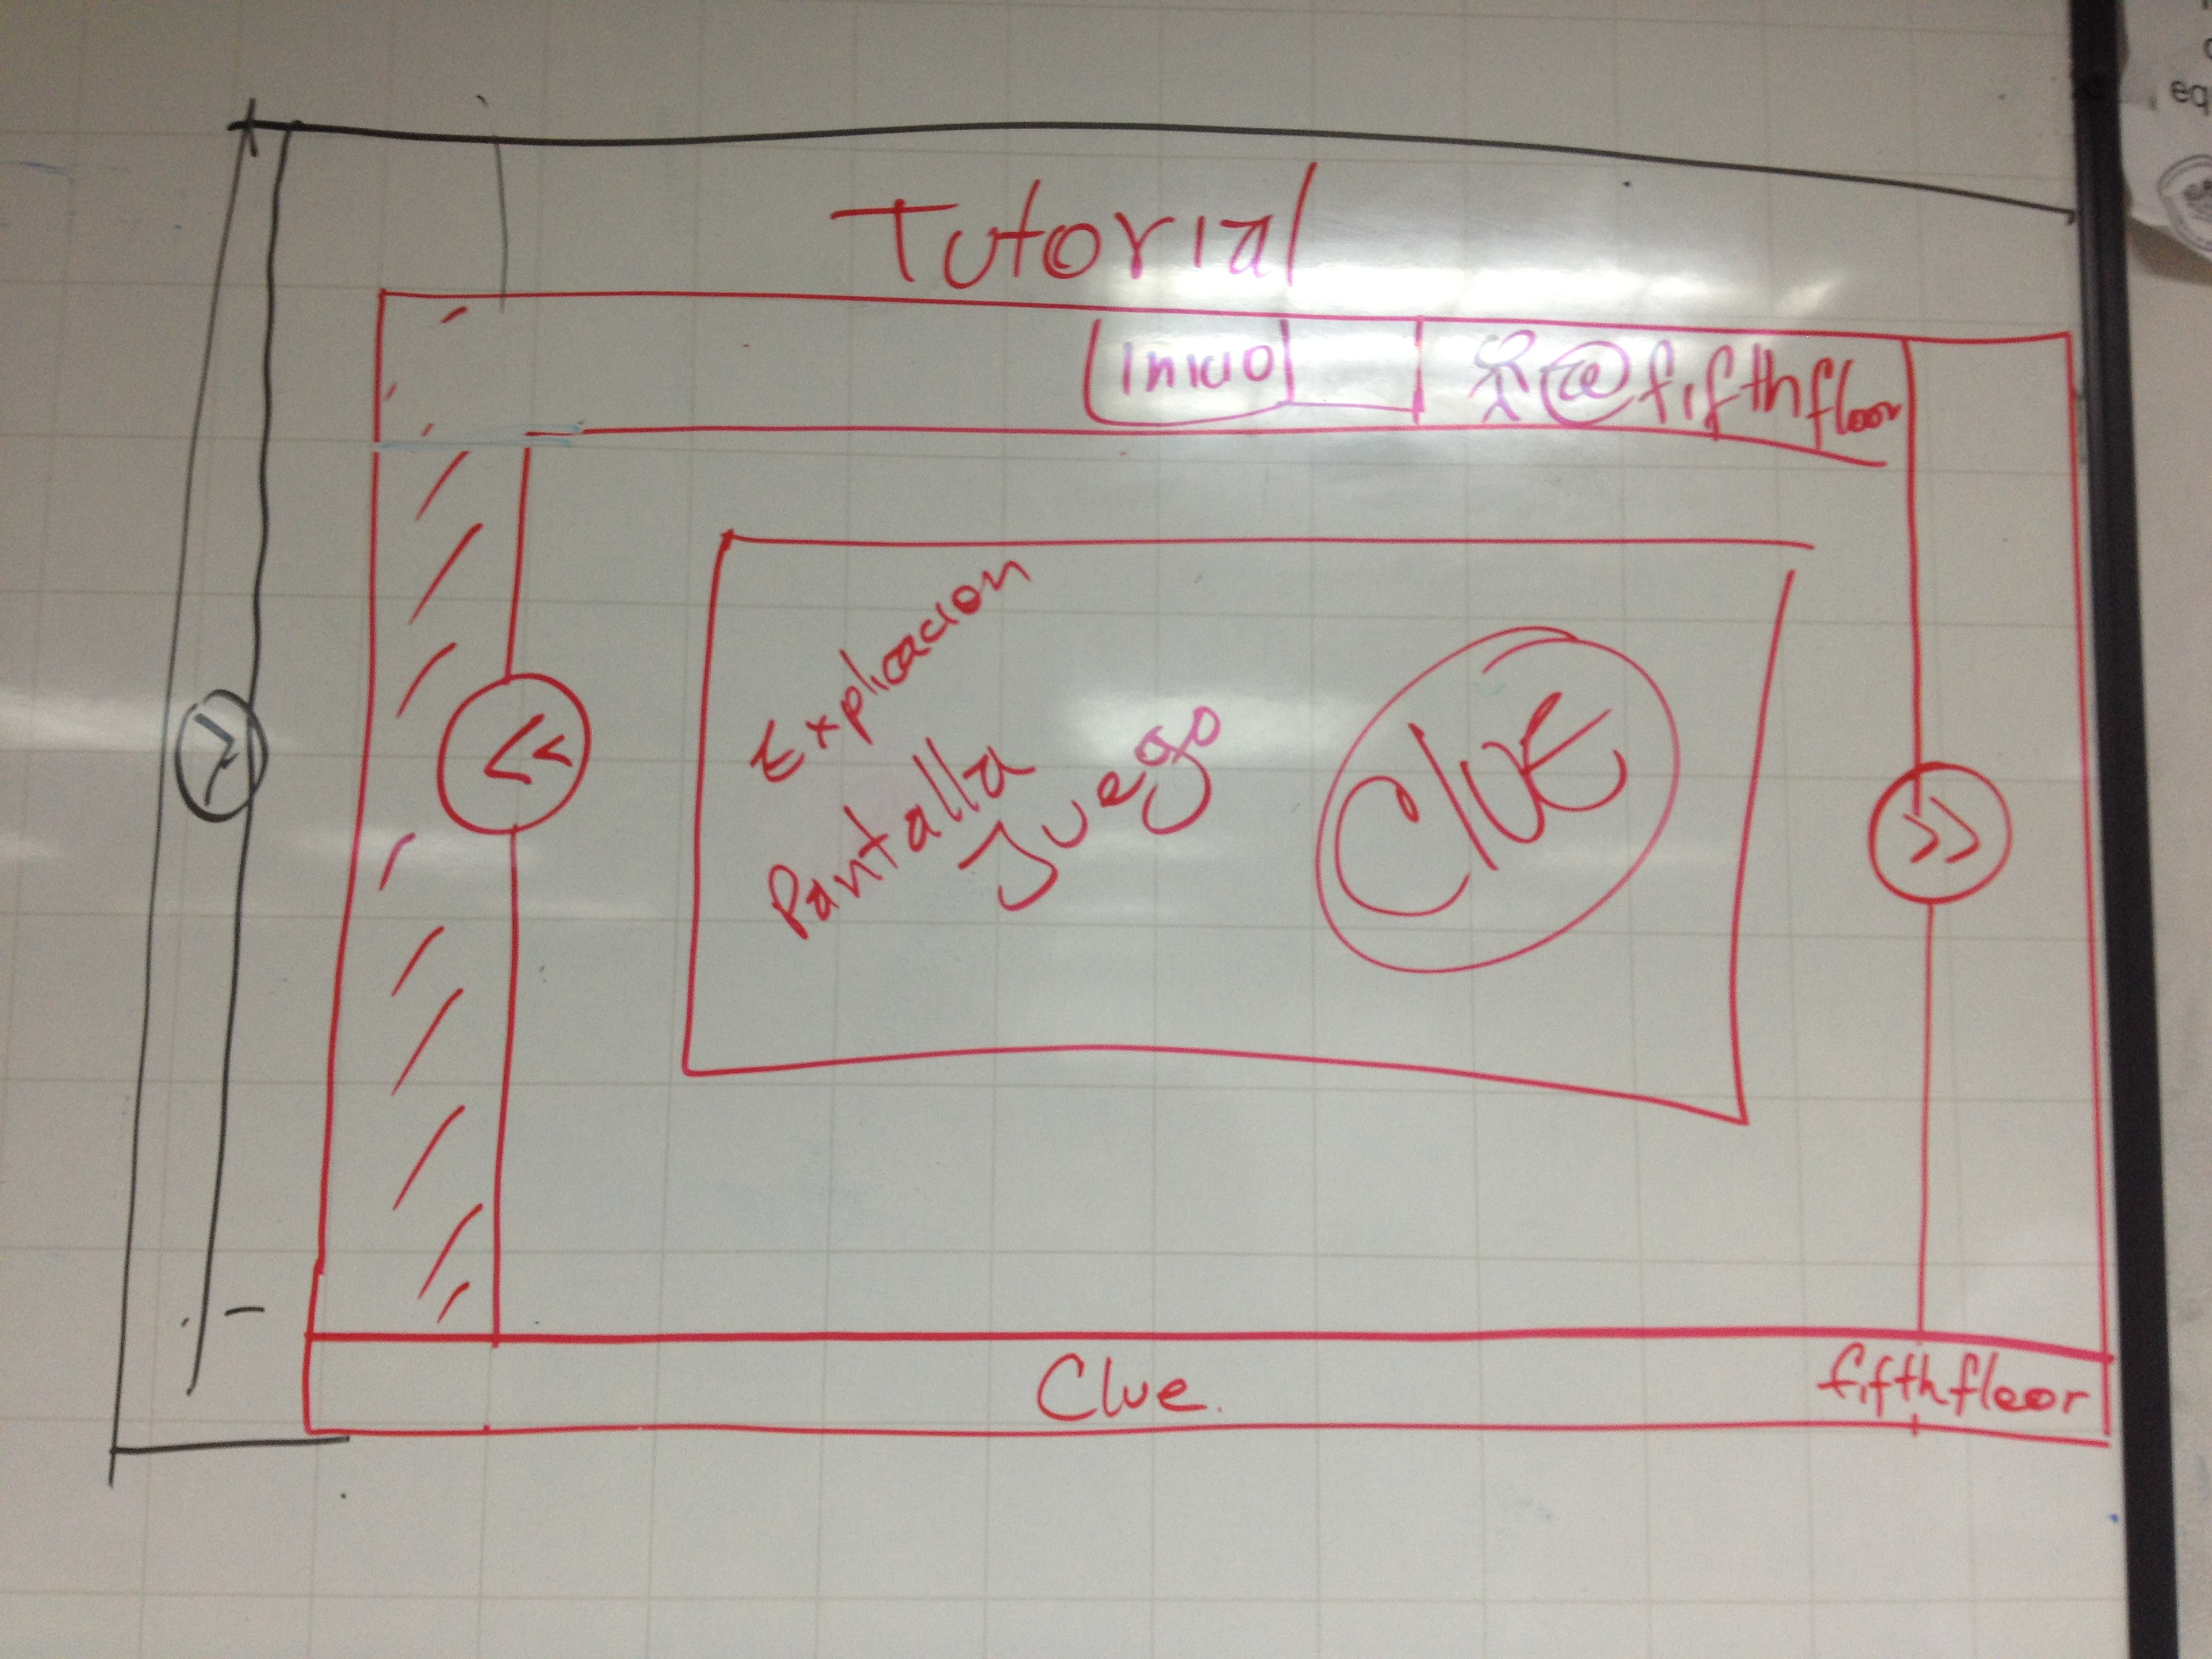 Tutorial
Inicio
@fifthfloor
Explicacion
Pantalla
Juego
CluE
<<
>>
>
Clue.
fifthfloor
eq